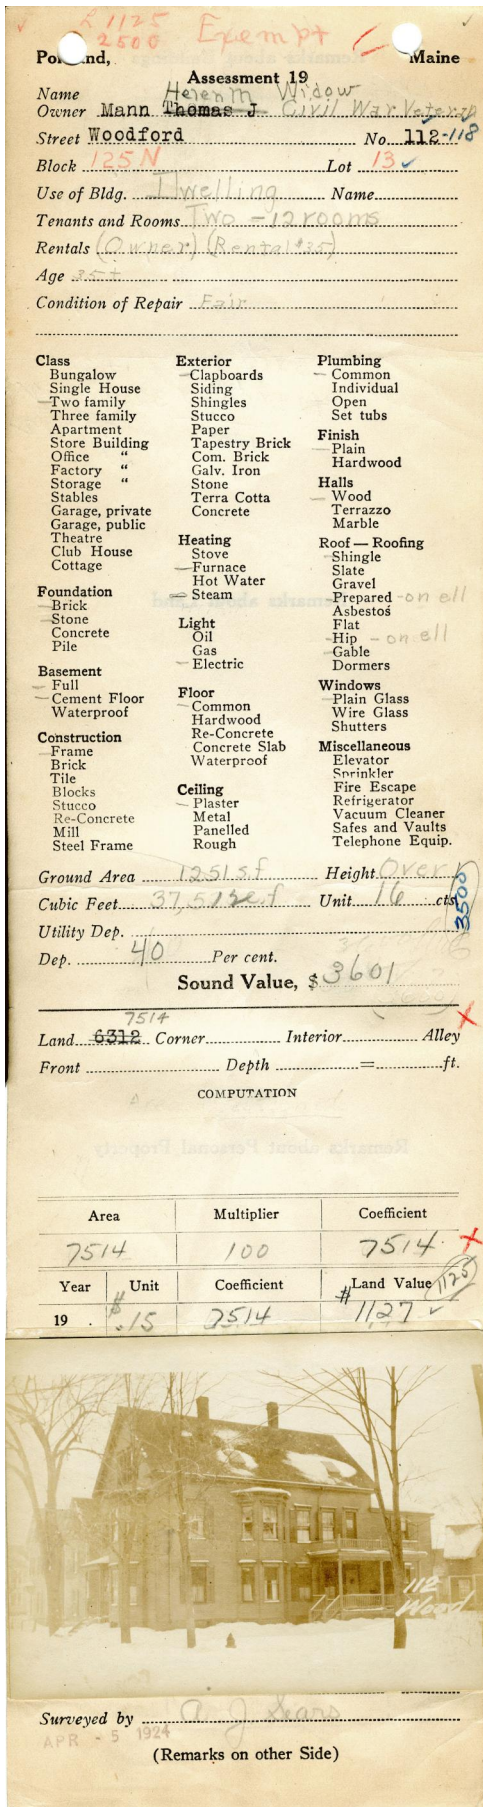 L 1125
2500 Exempt
Portland, Maine
Assessment 19
Name Helen M Widow
Owner Mann Thomas J Civil War Veteran
Street Woodford No. 112-118
Block 125N Lot 13
Use of Bldg. Dwelling Name
Tenants and Rooms Two - 12 rooms
Rentals (Owner) (Rental $35)
Age 35+
Condition of Repair Fair
Class
Bungalow
Single House
Two family
Three family
Apartment
Store Building
Office "
Factory "
Storage "
Stables
Garage, private
Garage, public
Theatre
Club House
Cottage
Foundation
Brick
Stone
Concrete
Pile
Basement
Full
Cement Floor
Waterproof
Construction
Frame
Brick
Tile
Blocks
Stucco
Re-Concrete
Mill
Steel Frame
Exterior
Clapboards
Siding
Shingles
Stucco
Paper
Tapestry Brick
Com. Brick
Galv. Iron
Stone
Terra Cotta
Concrete
Heating
Stove
Furnace
Hot Water
Steam
Light
Oil
Gas
Electric
Floor
Common
Hardwood
Re-Concrete
Concrete Slab
Waterproof
Ceiling
Plaster
Metal
Panelled
Rough
Plumbing
Common
Individual
Open
Set tubs
Finish
Plain
Hardwood
Halls
Wood
Terrazzo
Marble
Roof — Roofing
Shingle
Slate
Gravel
Prepared - on ell
Asbestos
Flat
Hip - on ell
Gable
Dormers
Windows
Plain Glass
Wire Glass
Shutters
Miscellaneous
Elevator
Sprinkler
Fire Escape
Refrigerator
Vacuum Cleaner
Safes and Vaults
Telephone Equip.
Ground Area 1251 s.f Height Over
Cubic Feet Unit 16 cts.
3500
Utility Dep.
Dep. 40 Per cent.
Sound Value, $ 3601
7514
Land 6312 Corner Interior Alley
Front Depth = ft.
COMPUTATION
Area Multiplier Coefficient
7514 100 7514
Year Unit Coefficient Land Value 1125
19 . $ .15 7514 $ 1127
112
Wood
Surveyed by A. J. Sears
APR - 5 1924
(Remarks on other Side)